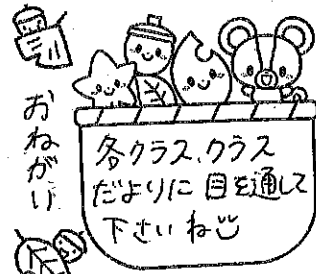 おねがい
各クラス、クラス
だよりに目を通して
下さいね